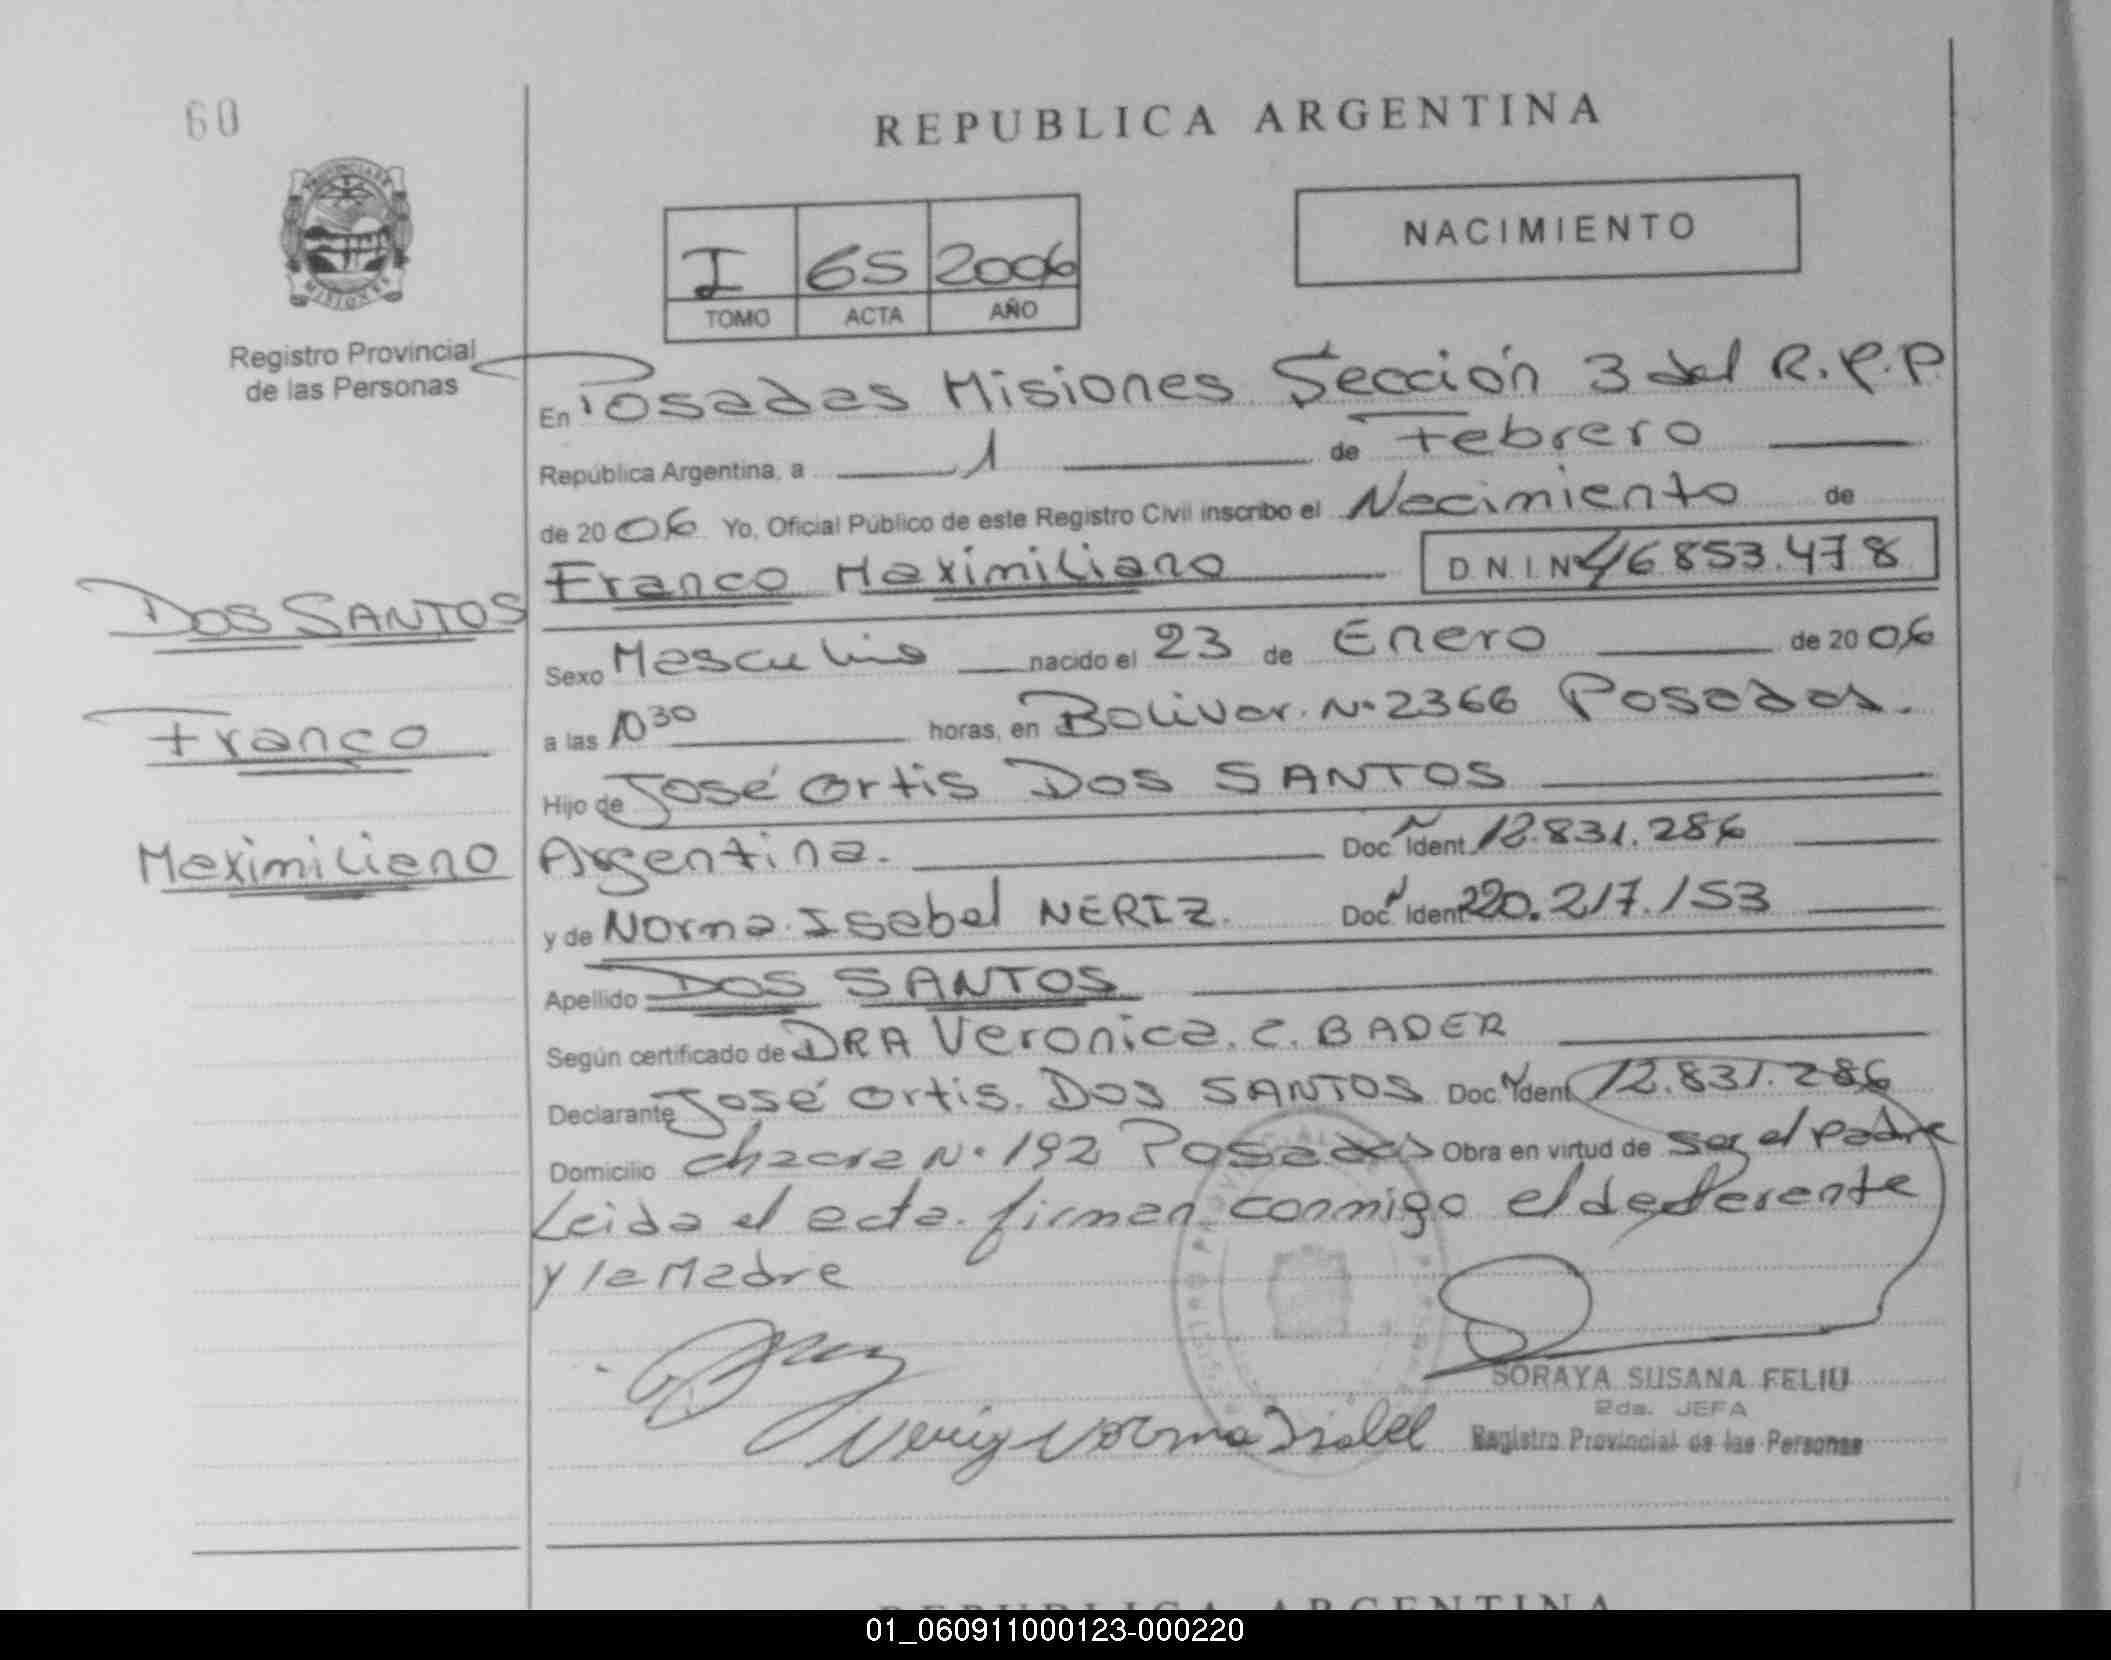 60
REPUBLICA ARGENTINA
NACIMIENTO
I 65 2006
TOMO ACTA AÑO
Registro Provincial
de las Personas
En Posadas Misiones Sección 3 del R.P.P
República Argentina, a 1 de Febrero
de 2006 Yo, Oficial Público de este Registro Civil inscribo el Nacimiento de
Franco Maximiliano D.N.I.Nº 46853.478
DOS SANTOS
Franco
Maximiliano
Sexo Masculino nacido el 23 de Enero de 2006
a las 10 30 horas, en Bolivar. Nº 2366 Posadas.
Hijo de José Ortis DOS SANTOS
Argentina. Doc. Ident. 12.831.286
y de Norma. Isabel NERIZ. Doc. Ident. 20.217.153
Apellido DOS SANTOS
Según certificado de DRA Veronica. C. BADER
Declarante José Ortis. DOS SANTOS Doc. Ident 12.831.286
Domicilio chacra Nº 192 Posadas Obra en virtud de ser el padre
Leida el acta. firman conmigo el
y la Madre
Norma Isabel
SORAYA SUSANA FELIU
2da. JEFA
Registro Provincial de las Personas
REPUBLICA ARGENTINA
01_060911000123-000220